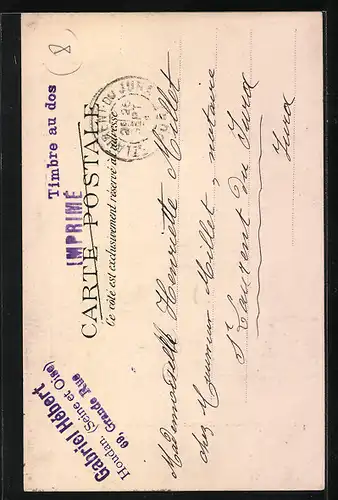 (8)
Timbre au dos
IMPRIMÉ
CARTE POSTALE
Ce côté est exclusivement réservé à l'adresse
Gabriel Hébert
Houdan. (Seine et Oise)
69, Grande Rue
DU JURA
Mademoiselle Henriette Millet
chez Monsieur Millet, notaire
St Laurent du Jura
Jura